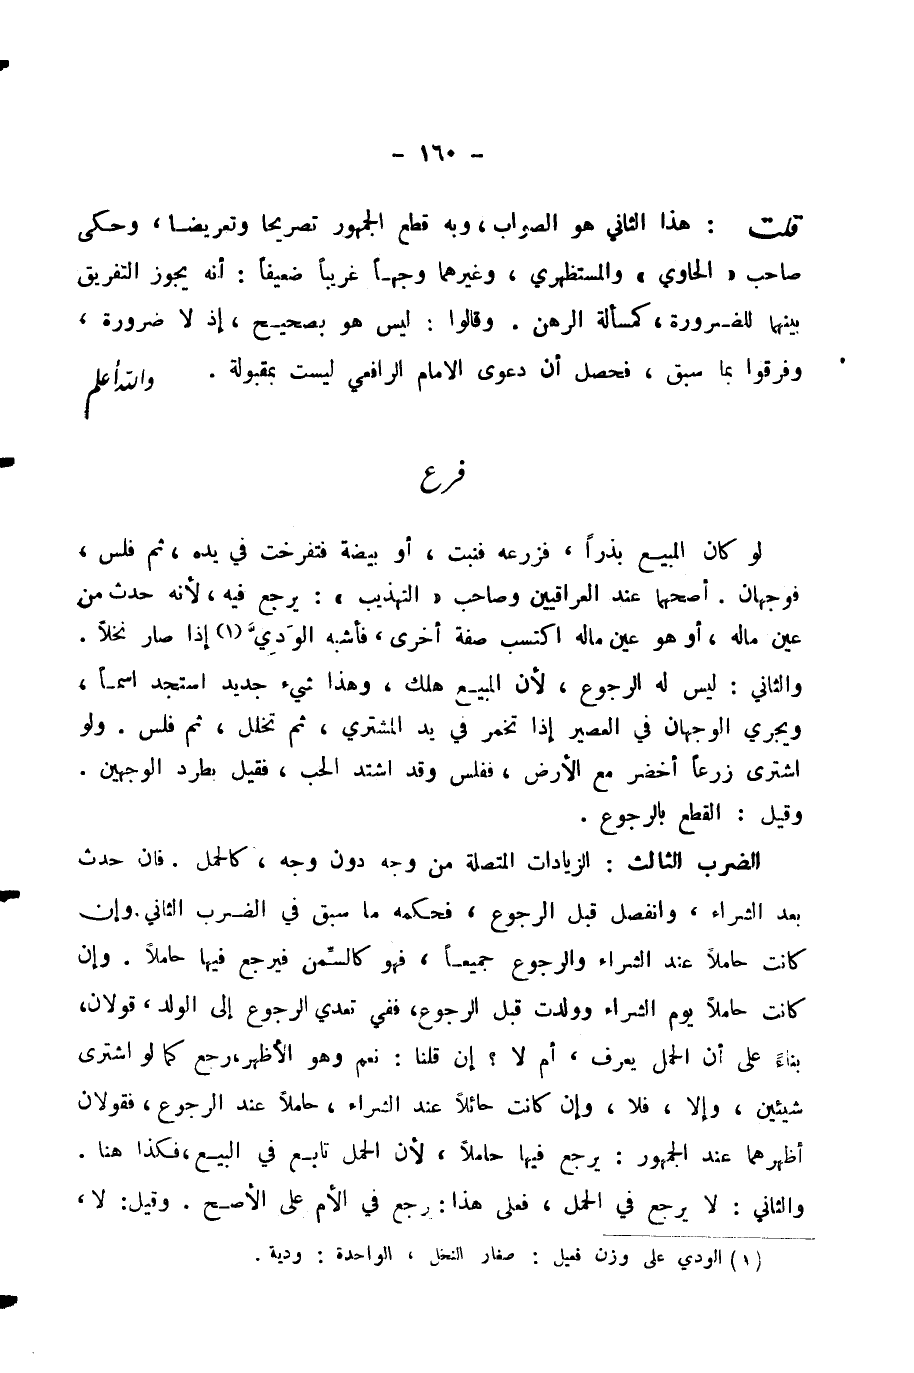 - ١٦٠ -
قلت : هذا الثاني هو الصواب ، وبه قطع الجمهور تصريحا وتعريضا ، وحكى
صاحب « الحاوي » والمستظهري ، وغيرهما وجهاً غريباً ضعيفاً : أنه يجوز التفريق
بينها للضرورة ، كمسألة الرهن . وقالوا : ليس هو بصحيح ، إذ لا ضرورة ،
وفرقوا بما سبق ، فحصل أن دعوى الامام الرافعي ليست بمقبولة . والله أعلم
فرع
لو كان المبيع بذراً ، فزرعه فنبت ، أو بيضة فتفرخت في يده ، ثم فلس ،
فوجهان . أصحها عند العراقيين وصاحب « التهذيب » : يرجع فيه ، لأنه حدث من
عين ماله ، أو هو عين ماله اكتسب صفة أخرى ، فأشبه الوَدِيَّ (١) إذا صار نخلاً .
والثاني : ليس له الرجوع ، لأن المبيع هلك ، وهذا شيء جديد استجد اسماً ،
ويجري الوجهان في العصير إذا تخمر في يد المشتري ، ثم تخلل ، ثم فلس . ولو
اشترى زرعاً أخضر مع الأرض ، ففلس وقد اشتد الحب ، فقيل بطرد الوجهين .
وقيل : القطع بالرجوع .
الضرب الثالث : الزيادات المتصلة من وجه دون وجه ، كالحمل . فان حدث
بعد الشراء ، وانفصل قبل الرجوع ، فحكمه ما سبق في الضرب الثاني . وإن
كانت حاملاً عند الشراء والرجوع جميعاً ، فهو كالسِّمن فيرجع فيها حاملاً . وإن
كانت حاملاً يوم الشراء وولدت قبل الرجوع ، ففي تعدي الرجوع إلى الولد ، قولان،
بناءً على أن الحمل يعرف ، أم لا ؟ إن قلنا : نعم وهو الأظهر،رجع كما لو اشترى
شيئين ، وإلا ، فلا ، وإن كانت حائلاً عند الشراء ، حاملاً عند الرجوع ، فقولان
أظهرهما عند الجمهور : يرجع فيها حاملاً ، لأن الحمل تابع في البيع،فكذا هنا .
والثاني : لا يرجع في الحمل ، فعلى هذا : رجع في الأم على الأصح . وقيل: لا ،
(١) الودي على وزن فعيل : صغار النخل ، الواحدة : ودية .